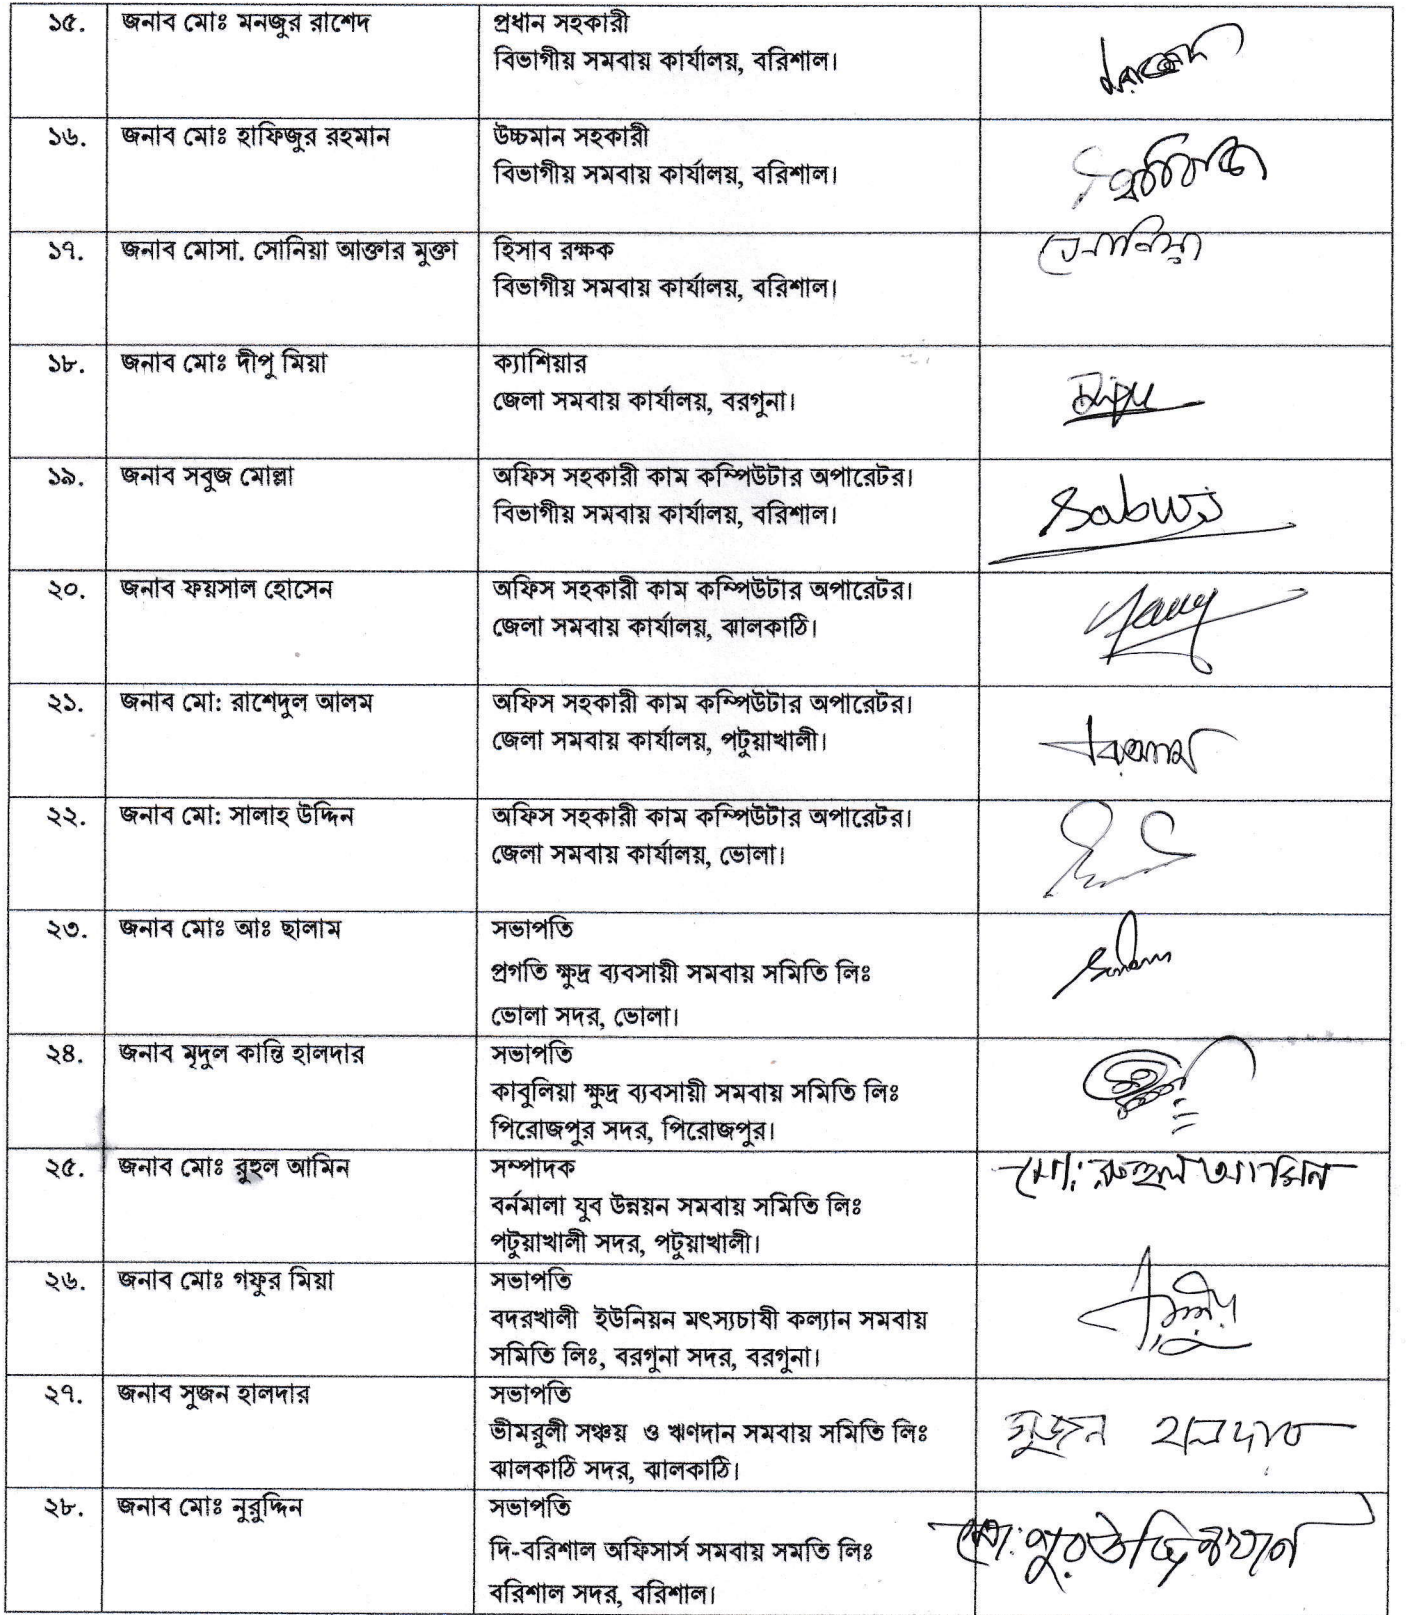 ১৫. জনাব মোঃ মনজুর রাশেদ প্রধান সহকারী
বিভাগীয় সমবায় কার্যালয়, বরিশাল।
১৬. জনাব মোঃ হাফিজুর রহমান উচ্চমান সহকারী
বিভাগীয় সমবায় কার্যালয়, বরিশাল।
১৭. জনাব মোসা. সোনিয়া আক্তার মুক্তা হিসাব রক্ষক সোনিয়া
বিভাগীয় সমবায় কার্যালয়, বরিশাল।
১৮. জনাব মোঃ দীপু মিয়া ক্যাশিয়ার
জেলা সমবায় কার্যালয়, বরগুনা। Dipu
১৯. জনাব সবুজ মোল্লা অফিস সহকারী কাম কম্পিউটার অপারেটর।
বিভাগীয় সমবায় কার্যালয়, বরিশাল। Sabuj
২০. জনাব ফয়সাল হোসেন অফিস সহকারী কাম কম্পিউটার অপারেটর।
জেলা সমবায় কার্যালয়, ঝালকাঠি।
২১. জনাব মো: রাশেদুল আলম অফিস সহকারী কাম কম্পিউটার অপারেটর।
জেলা সমবায় কার্যালয়, পটুয়াখালী।
২২. জনাব মো: সালাহ উদ্দিন অফিস সহকারী কাম কম্পিউটার অপারেটর।
জেলা সমবায় কার্যালয়, ভোলা।
২৩. জনাব মোঃ আঃ ছালাম সভাপতি
প্রগতি ক্ষুদ্র ব্যবসায়ী সমবায় সমিতি লিঃ
ভোলা সদর, ভোলা।
২৪. জনাব মৃদুল কান্তি হালদার সভাপতি
কাবুলিয়া ক্ষুদ্র ব্যবসায়ী সমবায় সমিতি লিঃ
পিরোজপুর সদর, পিরোজপুর।
২৫. জনাব মোঃ রুহুল আমিন সম্পাদক মো: রুহুল আমিন
বর্নমালা যুব উন্নয়ন সমবায় সমিতি লিঃ
পটুয়াখালী সদর, পটুয়াখালী।
২৬. জনাব মোঃ গফুর মিয়া সভাপতি
বদরখালী ইউনিয়ন মৎস্যচাষী কল্যান সমবায়
সমিতি লিঃ, বরগুনা সদর, বরগুনা।
২৭. জনাব সুজন হালদার সভাপতি
ভীমরুলী সঞ্চয় ও ঋণদান সমবায় সমিতি লিঃ সুজন হালদার
ঝালকাঠি সদর, ঝালকাঠি।
২৮. জনাব মোঃ নুরুদ্দিন সভাপতি
দি-বরিশাল অফিসার্স সমবায় সমতি লিঃ
বরিশাল সদর, বরিশাল।